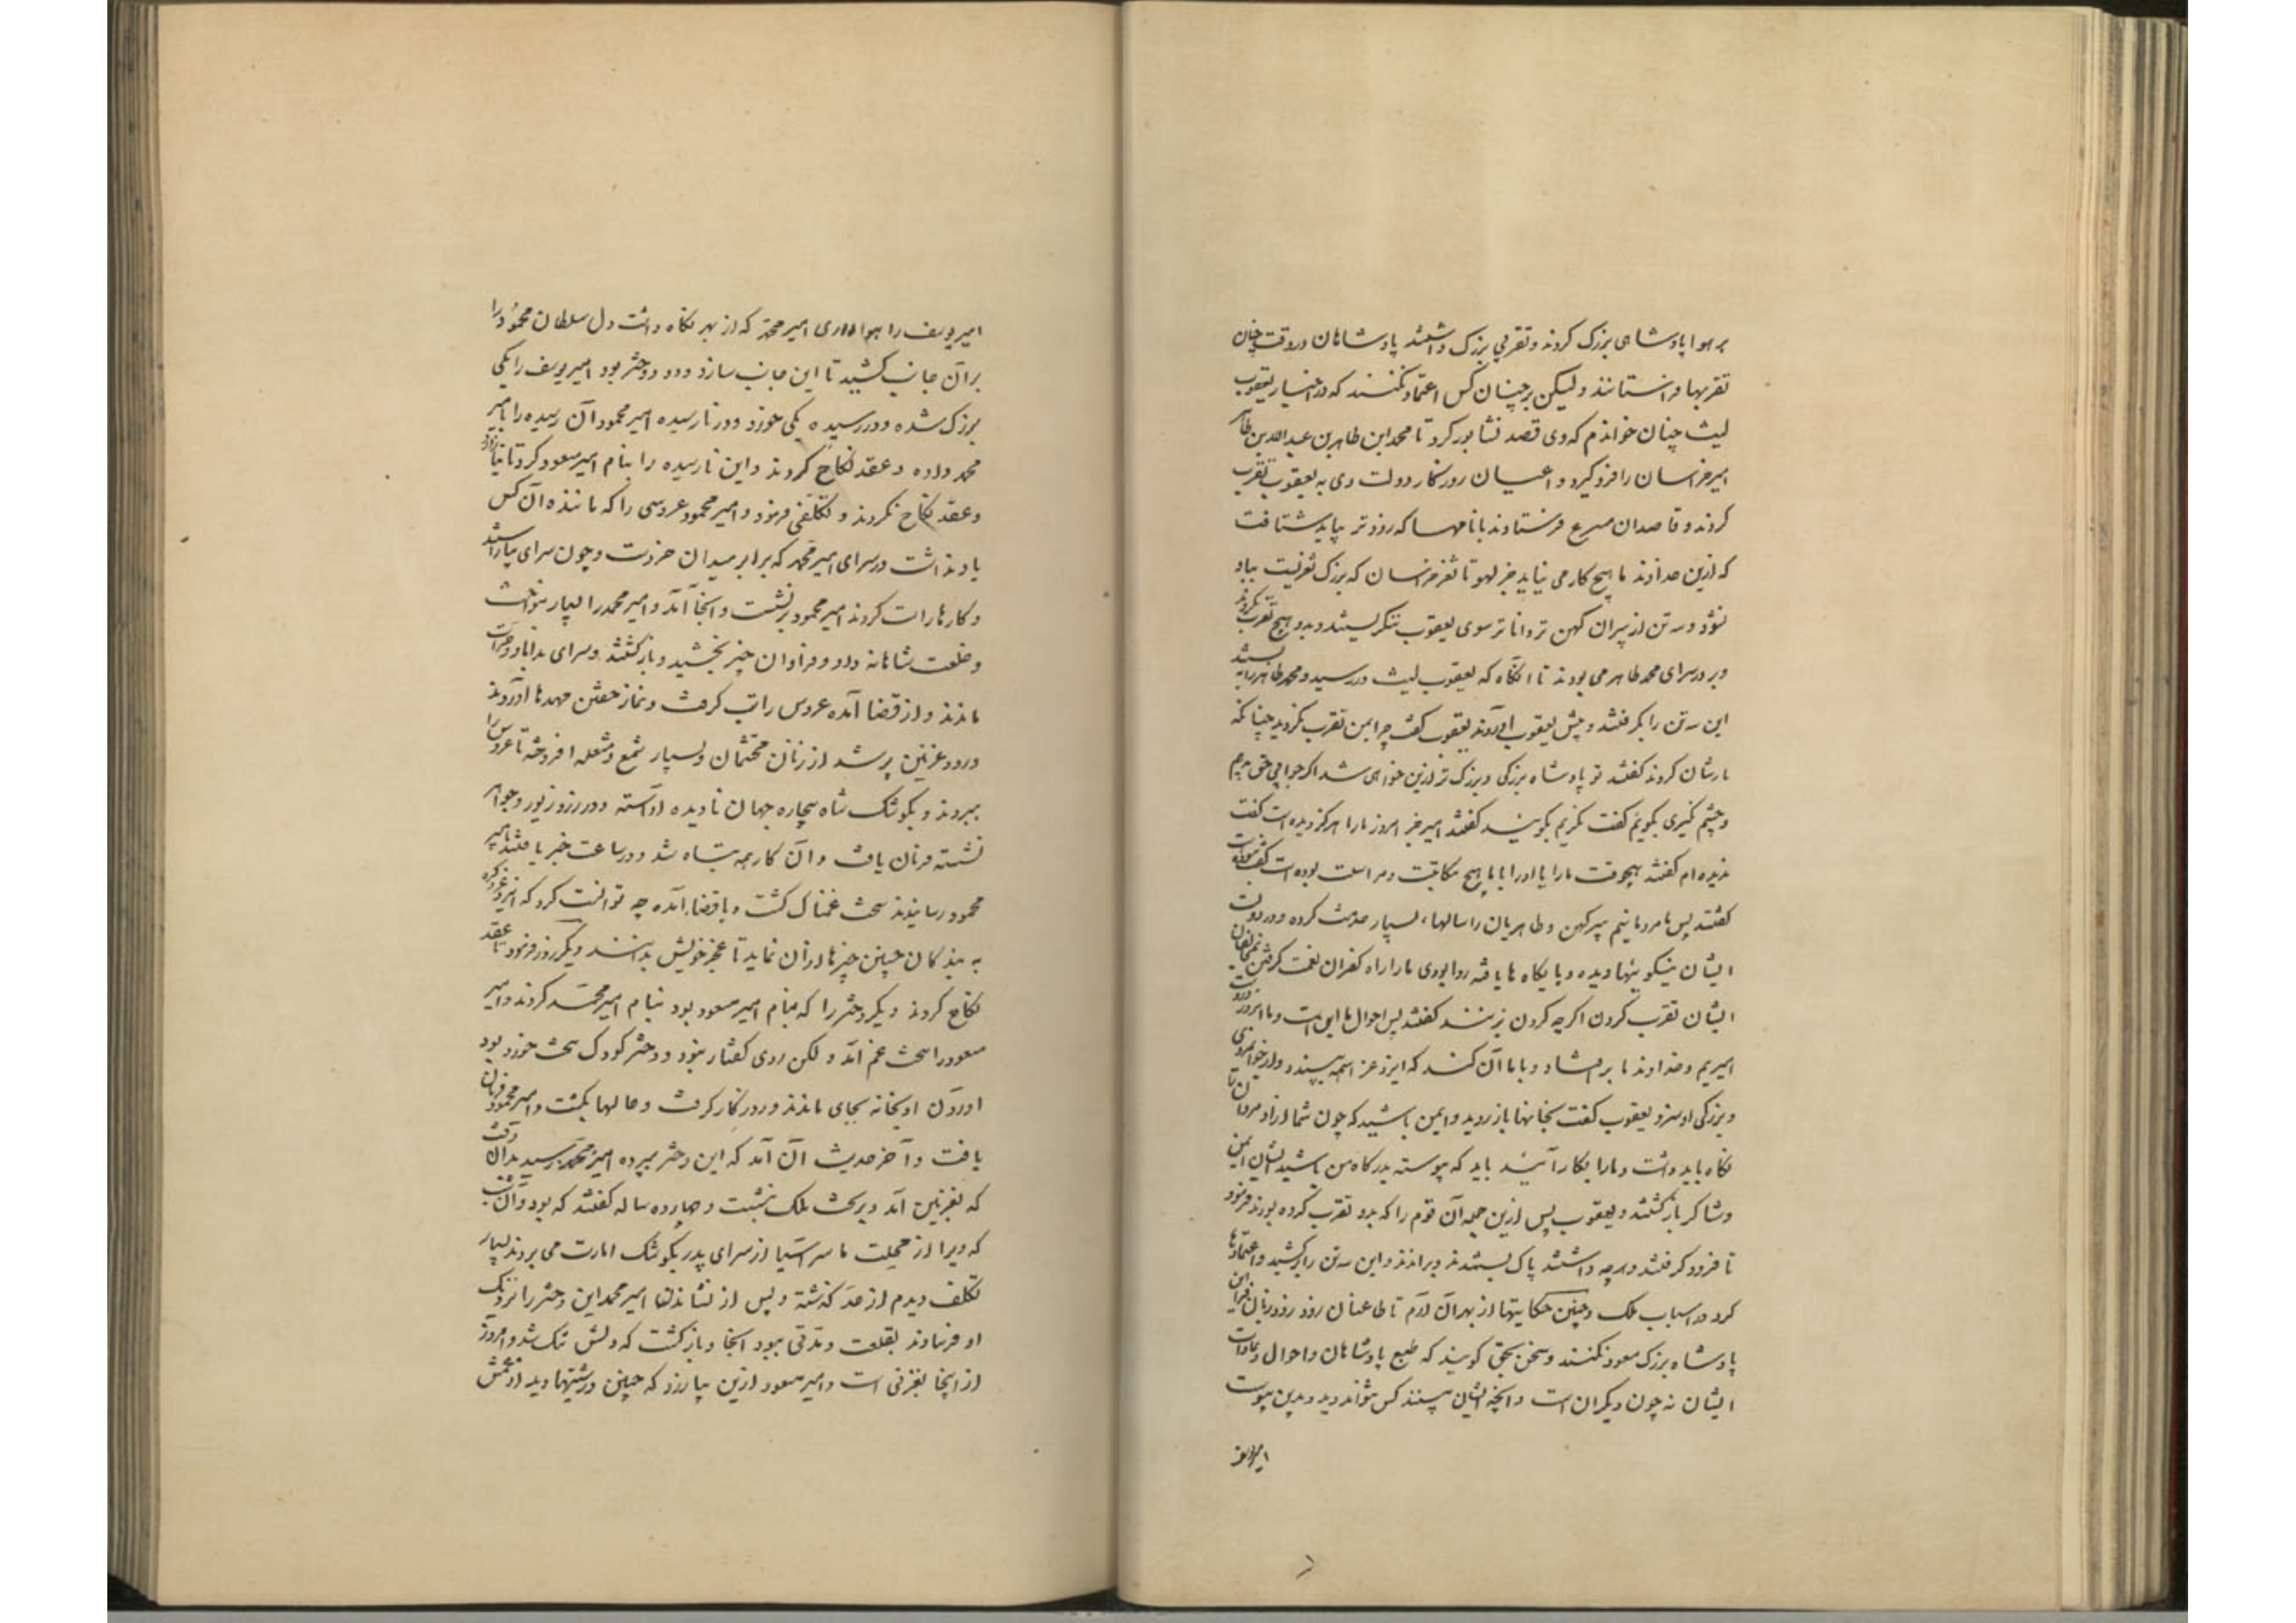 بر هوا پادشاهی بزرک کردند و تقربی بزرک داشتند پادشاهان در وقت چنان
تقربها فراستانند ولیکن بر چنان کس اعتماد نکنند که در اخبار یعقوب
لیث چنان خواندم که وی قصد نشابور کرد تا محمد ابن طاهر بن عبدالله بن طاهر
امیر خراسان را فرو گیرد و اعیان روزکار دولت وی به یعقوب تقرب
کردند و قاصدان مسرع فرستادند با نامها که زودتر بباید شتافت
که ازین خداوند ما هیچ کار می نیاید جز لهو تا ثغر خراسان که بزرک ثغریست بباد
نشود و سه تن از پیران کهن تر و داناتر سوی یعقوب ننکریستند و بدو هیچ تقرب نکردند
و بر در سرای محمد طاهر می بودند تا آنکاه که یعقوب لیث در رسید و محمد طاهر را ببستند
این سه تن را بکرفتند و پیش یعقوب آوردند یعقوب گفت چرا بمن تقرب نکردید چنانکه
یارتان کردند گفتند تو پادشاه بزرکی و بزرک تر ازین خواهی شد اکر جوابی حق بدهیم
و خشم نکیری بکوئیم گفت نکیرم بکویند گفتند امیر جز امروز ما را هرکز دیده است گفت
ندیده ام گفتند بهیچوقت ما را با او و او را با ما هیچ مکاتبت و مراسلت بوده است گفت نبوده است
گفتند پس ما مردمانیم پیر و کهن و طاهریان را سالهاء بسیار خدمت کرده و در دولت
ایشان نیکوئیها دیده و پایکاه ها یافته روا بودی ما را راه کفران نعمت کرفتن و بمخالفان
ایشان تقرب کردن اکر چه کردن بزنند گفتند پس احوال ما این است و ما امروز در دست
امیریم و خداوند ما برافتاد و با ما آن کند که ایزد عز اسمه بپسندد و از جوانمردی
و بزرکی او سزد یعقوب گفت بخانها باز روید و ایمن باشید که چون شما آزاد مردان را
نکاه باید داشت و ما را بکار آئید باید که پیوسته بدرکاه من باشید ایشان ایمن
و شاکر بازکشتند و یعقوب پس ازین جمله آن قوم را که بدو تقرب کرده بودند فرمود
تا فرود کرفتند و هرچه داشتند پاک بستدند و براندند و این سه تن را برکشید و اعتمادها
کرد در اسباب ملک و چنین حکایتها از بهر آن آرم تا طاعنان زود زود زبان فرا این
پادشاه بزرک مسعود نکنند و سخن بحق کویند که طبع پادشاهان و احوال و عادات
ایشان نه چون دیکران است و آنچه ایشان بینند کس نتواند دید و بدین پیوست
امیر یوسف
امیر یوسف را هواداری امیر محمد که از بهر نکاه داشت دل سلطان محمود را
بر آن جانب کشید تا این جانب بیازرد و دو دختر بود امیر یوسف را یکی
بزرک شده و در رسیده و یکی خورد و در نارسیده امیر محمود آن رسیده را بامیر
محمد داده و عقد نکاح کردند و این نارسیده را بنام امیر مسعود کرد تا نیازارد
و عقد نکاح نکردند و تکلفی فرمود و امیر محمود عروسی را که مانند آن کس
یاد نداشت در سرای امیر محمد که برابر میدان خرد است و چون سرای بیاراستند
و کارها راست کردند امیر محمود برنشست و آنجا آمد و امیر محمد را بسیار بنواخت
و خلعت شاهانه داد و فراوان چیز بخشید و بازکشتند و سرای بداماد و حرات
ماندند و از قضا آمده عروس را تب کرفت و نماز خفتن مهدها آوردند
و رود غزنین پر شد از زنان محتشمان و بسیار شمع و مشعله افروخته تا عروس را
ببرند و بکوشک شاه بیچاره جهان نادیده آراسته و در زر و زیور و جواهر
نشسته فرمان یافت و آن کار همه تباه شد و در ساعت خبر یافتند بامیر
محمود رسانیدند سخت غمناک کشت و با قضا آمده چه توانست کرد که ایزد عز ذکره
به بندکان چنین چیزها از آن نماید تا عجز خویش بدانند دیکر روز فرمود تا عقد
نکاح کردند دیکر دختر را که بنام امیر مسعود بود بنام امیر محمد کردند و امیر
مسعود را سخت غم آمد ولکن روی گفتار نبود و دختر کودک سخت خورد بود
آوردن او بخانه بجای ماندند و روزکار کرفت و حالها بکشت و امیر محمود فرمان
یافت و آخر حدیث آن آمد که این دختر بپرده امیر محمد رسید بدان وقت
که بغزنین آمد و بر تخت ملک نشست و چهارده ساله گفتند که بود و آن شب
که ویرا از محلت ما سر آسیا از سرای پدر بکوشک امارت می بردند بسیار
تکلف دیدم از حد کذشته و پس از نشاندن امیر محمد این دختر را نزدیک
او فرستادند بقلعت و مدتی ببود آنجا و بازکشت که دلش تنک شد و امروز
از اینجا بغزنی است و امیر مسعود ازین بیازرد که چنین درشتیها دید از عمش